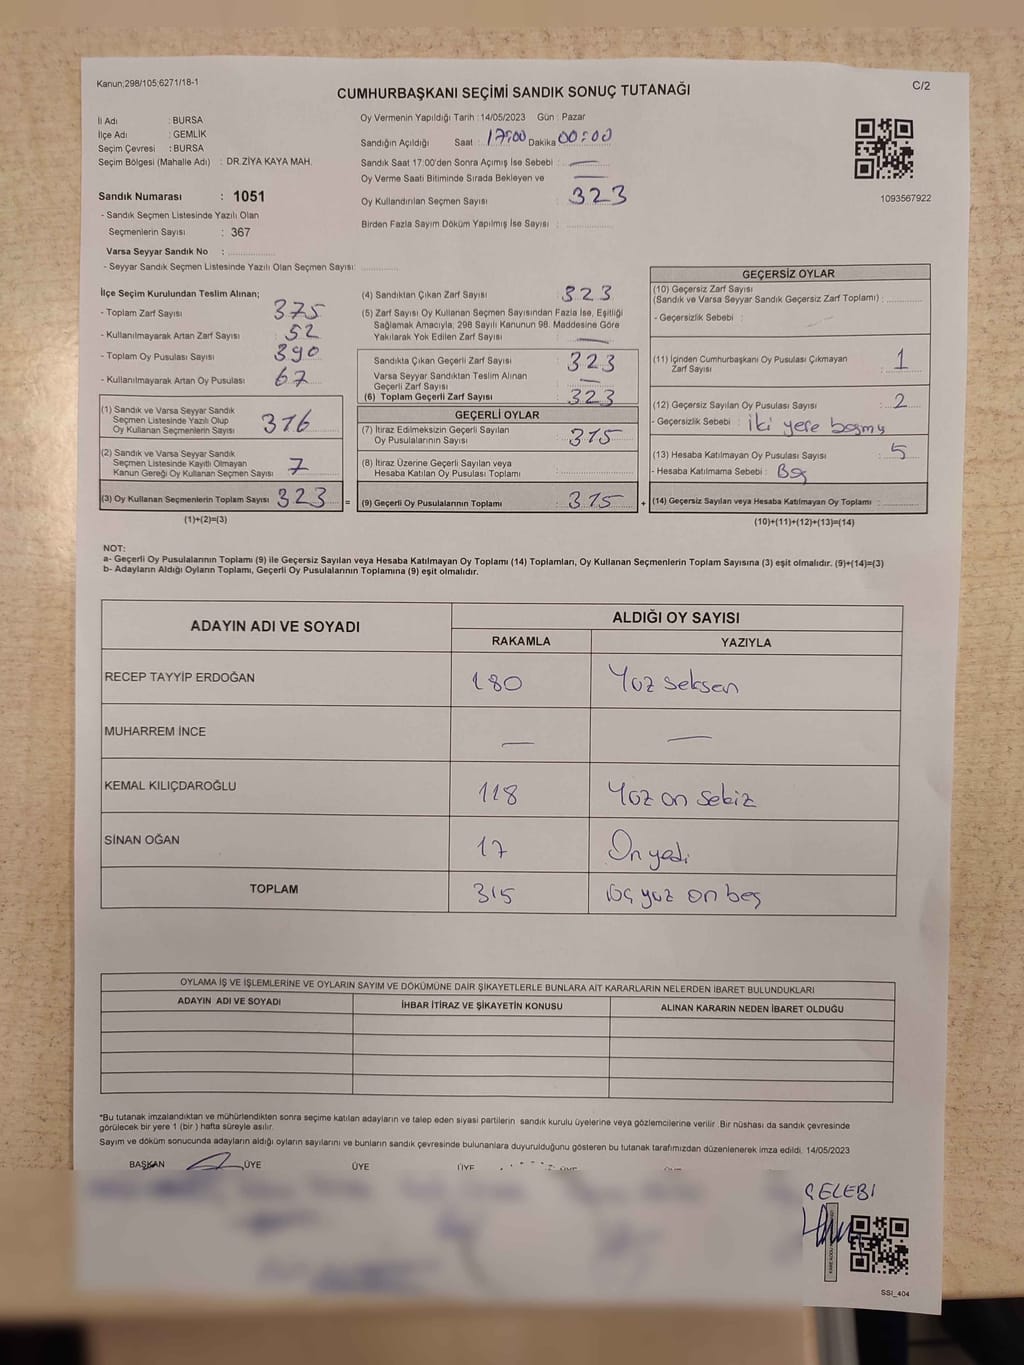 Kanun;298/105;6271/18-1
C/2
CUMHURBAŞKANI SEÇİMİ SANDIK SONUÇ TUTANAĞI
İl Adı : BURSA
İlçe Adı : GEMLİK
Seçim Çevresi : BURSA
Seçim Bölgesi (Mahalle Adı) : DR.ZİYA KAYA MAH.
Sandık Numarası : 1051
- Sandık Seçmen Listesinde Yazılı Olan
Seçmenlerin Sayısı : 367
Varsa Seyyar Sandık No :
- Seyyar Sandık Seçmen Listesinde Yazılı Olan Seçmen Sayısı:
Oy Vermenin Yapıldığı Tarih : 14/05/2023 Gün : Pazar
Sandığın Açıldığı Saat : 17:00 Dakika 00:00
Sandık Saat 17:00'den Sonra Açımış İse Sebebi : —
Oy Verme Saati Bitiminde Sırada Bekleyen ve —
Oy Kullandırılan Seçmen Sayısı : 323
Birden Fazla Sayım Döküm Yapılmış İse Sayısı :
1093567922
İlçe Seçim Kurulundan Teslim Alınan;
- Toplam Zarf Sayısı : 375
- Kullanılmayarak Artan Zarf Sayısı : 52
- Toplam Oy Pusulası Sayısı : 390
- Kullanılmayarak Artan Oy Pusulası : 67
(1) Sandık ve Varsa Seyyar Sandık
Seçmen Listesinde Yazılı Olup
Oy Kullanan Seçmenlerin Sayısı : 316
(2) Sandık ve Varsa Seyyar Sandık
Seçmen Listesinde Kayıtlı Olmayan
Kanun Gereği Oy Kullanan Seçmen Sayısı : 7
(3) Oy Kullanan Seçmenlerin Toplam Sayısı : 323 =
(1)+(2)=(3)
(4) Sandıktan Çıkan Zarf Sayısı : 323
(5) Zarf Sayısı Oy Kullanan Seçmen Sayısından Fazla İse, Eşitliği
Sağlamak Amacıyla, 298 Sayılı Kanunun 98. Maddesine Göre
Yakılarak Yok Edilen Zarf Sayısı : —
Sandıkta Çıkan Geçerli Zarf Sayısı : 323
Varsa Seyyar Sandıktan Teslim Alınan
Geçerli Zarf Sayısı : —
(6) Toplam Geçerli Zarf Sayısı : 323
GEÇERLİ OYLAR
(7) İtiraz Edilmeksizin Geçerli Sayılan
Oy Pusulalarının Sayısı : 315
(8) İtiraz Üzerine Geçerli Sayılan veya
Hesaba Katılan Oy Pusulası Toplamı :
(9) Geçerli Oy Pusulalarının Toplamı : 315 +
GEÇERSİZ OYLAR
(10) Geçersiz Zarf Sayısı
(Sandık ve Varsa Seyyar Sandık Geçersiz Zarf Toplamı) :
- Geçersizlik Sebebi : —
(11) İçinden Cumhurbaşkanı Oy Pusulası Çıkmayan
Zarf Sayısı : 1
(12) Geçersiz Sayılan Oy Pusulası Sayısı : 2
- Geçersizlik Sebebi : İki yere basmış
(13) Hesaba Katılmayan Oy Pusulası Sayısı : 5
- Hesaba Katılmama Sebebi :
(14) Geçersiz Sayılan veya Hesaba Katılmayan Oy Toplamı :
(10)+(11)+(12)+(13)=(14)
NOT:
a- Geçerli Oy Pusulalarının Toplamı (9) ile Geçersiz Sayılan veya Hesaba Katılmayan Oy Toplamı (14) Toplamları, Oy Kullanan Seçmenlerin Toplam Sayısına (3) eşit olmalıdır. (9)+(14)=(3)
b- Adayların Aldığı Oyların Toplamı, Geçerli Oy Pusulalarının Toplamına (9) eşit olmalıdır.
ADAYIN ADI VE SOYADI
ALDIĞI OY SAYISI
RAKAMLA YAZIYLA
RECEP TAYYİP ERDOĞAN 180 Yüz seksen
MUHARREM İNCE — —
KEMAL KILIÇDAROĞLU 118 Yüz on sekiz
SİNAN OĞAN 17 On yedi
TOPLAM 315 üç yüz on beş
OYLAMA İŞ VE İŞLEMLERİNE VE OYLARIN SAYIM VE DÖKÜMÜNE DAİR ŞİKAYETLERLE BUNLARA AİT KARARLARIN NELERDEN İBARET BULUNDUKLARI
ADAYIN ADI VE SOYADI İHBAR İTİRAZ VE ŞİKAYETİN KONUSU ALINAN KARARIN NEDEN İBARET OLDUĞU
*Bu tutanak imzalandıktan ve mühürlendikten sonra seçime katılan adayların ve talep eden siyasi partilerin sandık kurulu üyelerine veya gözlemcilerine verilir .Bir nüshası da sandık çevresinde
görülecek bir yere 1 (bir ) hafta süreyle asılır.
Sayım ve döküm sonucunda adayların aldığı oyların sayılarını ve bunların sandık çevresinde bulunanlara duyurulduğunu gösteren bu tutanak tarafımızdan düzenlenerek imza edildi. 14/05/2023
BAŞKAN ÜYE ÜYE ÜYE
ÇELEBİ
SSI_404